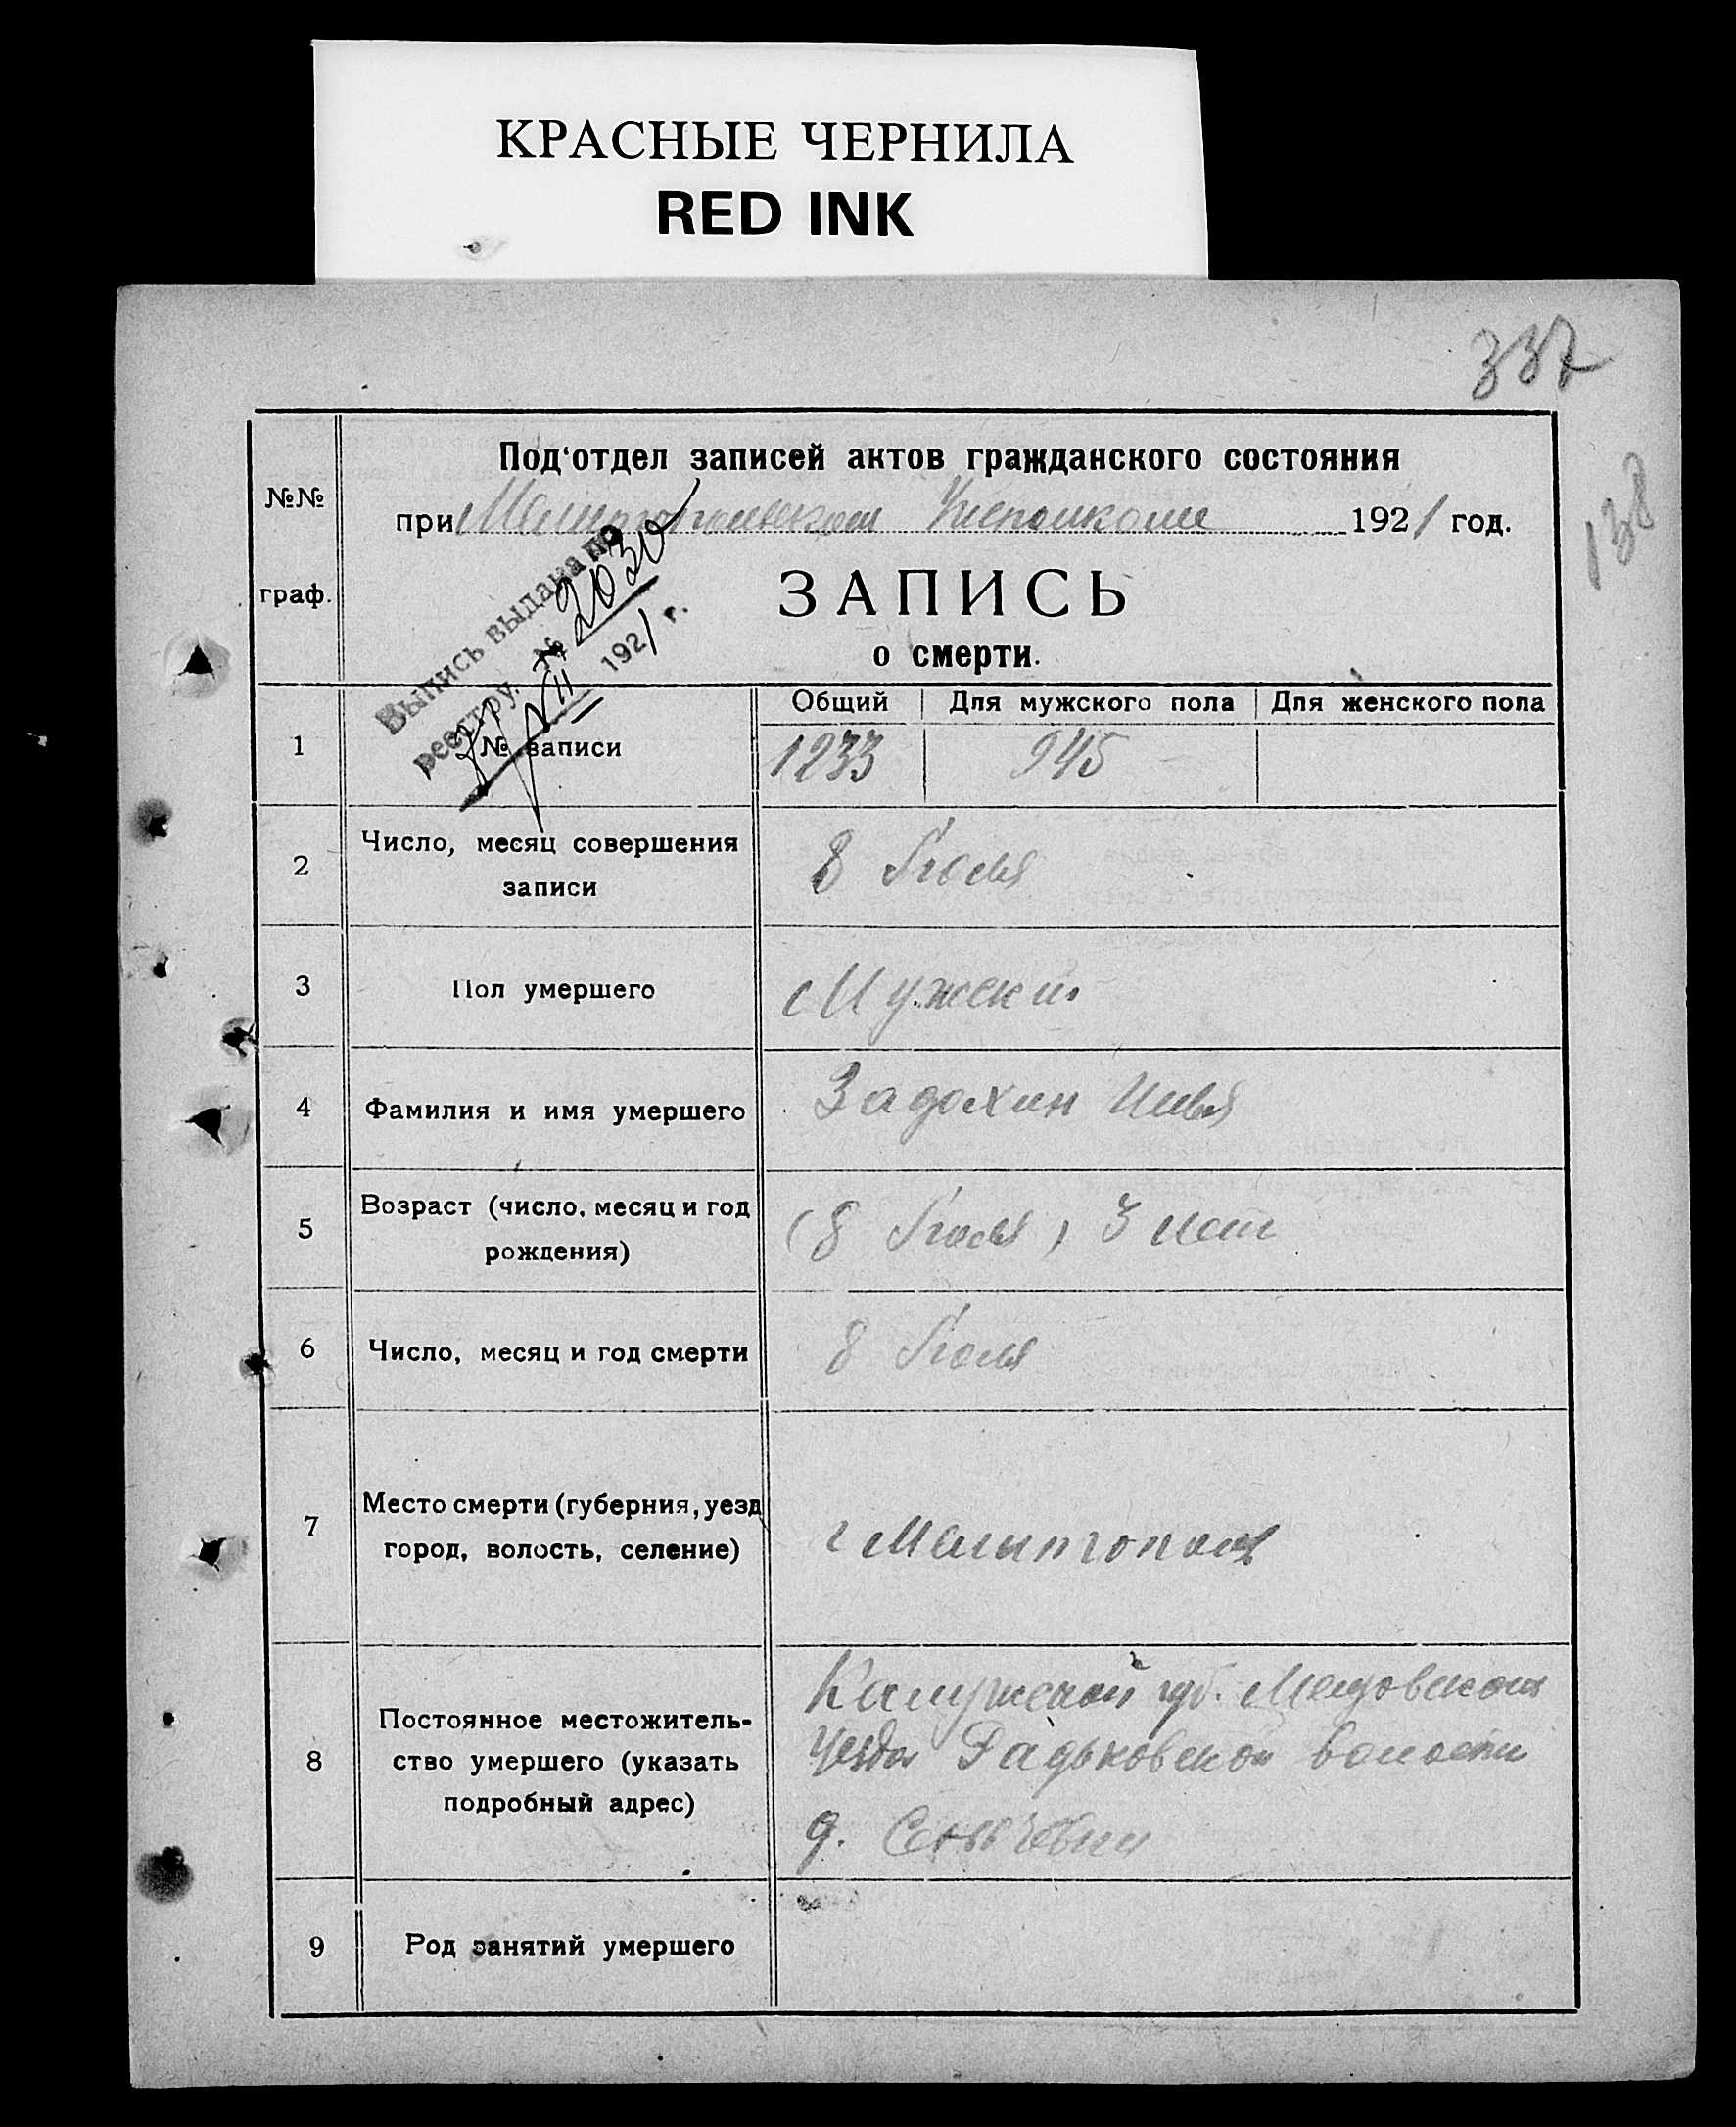 КРАСНЫЕ ЧЕРНИЛА
RED INK
337
138
№№
граф.
Под‘отдел записей актов гражданского состояния
при Мелитопольском 1921 год.
ЗАПИСЬ
о смерти.
Выпись выдана по
реестру № 2030
1921 г.
Общий Для мужского пола Для женского пола
1 № записи 1233 945
2 Число, месяц совершения
записи
8 Июля
3 Пол умершего Мужски
4 Фамилия и имя умершего Задохин Илья
5 Возраст (число, месяц и год
рождения)
(8 Июля) 3 лет
6 Число, месяц и год смерти 8 Июля
7 Место смерти (губерния, уезд
город, волость, селение)
г Мелитополь
8 Постоянное местожитель-
ство умершего (указать
подробный адрес)
Калужской губ.
Уезда волости
д.
9 Род занятий умершего